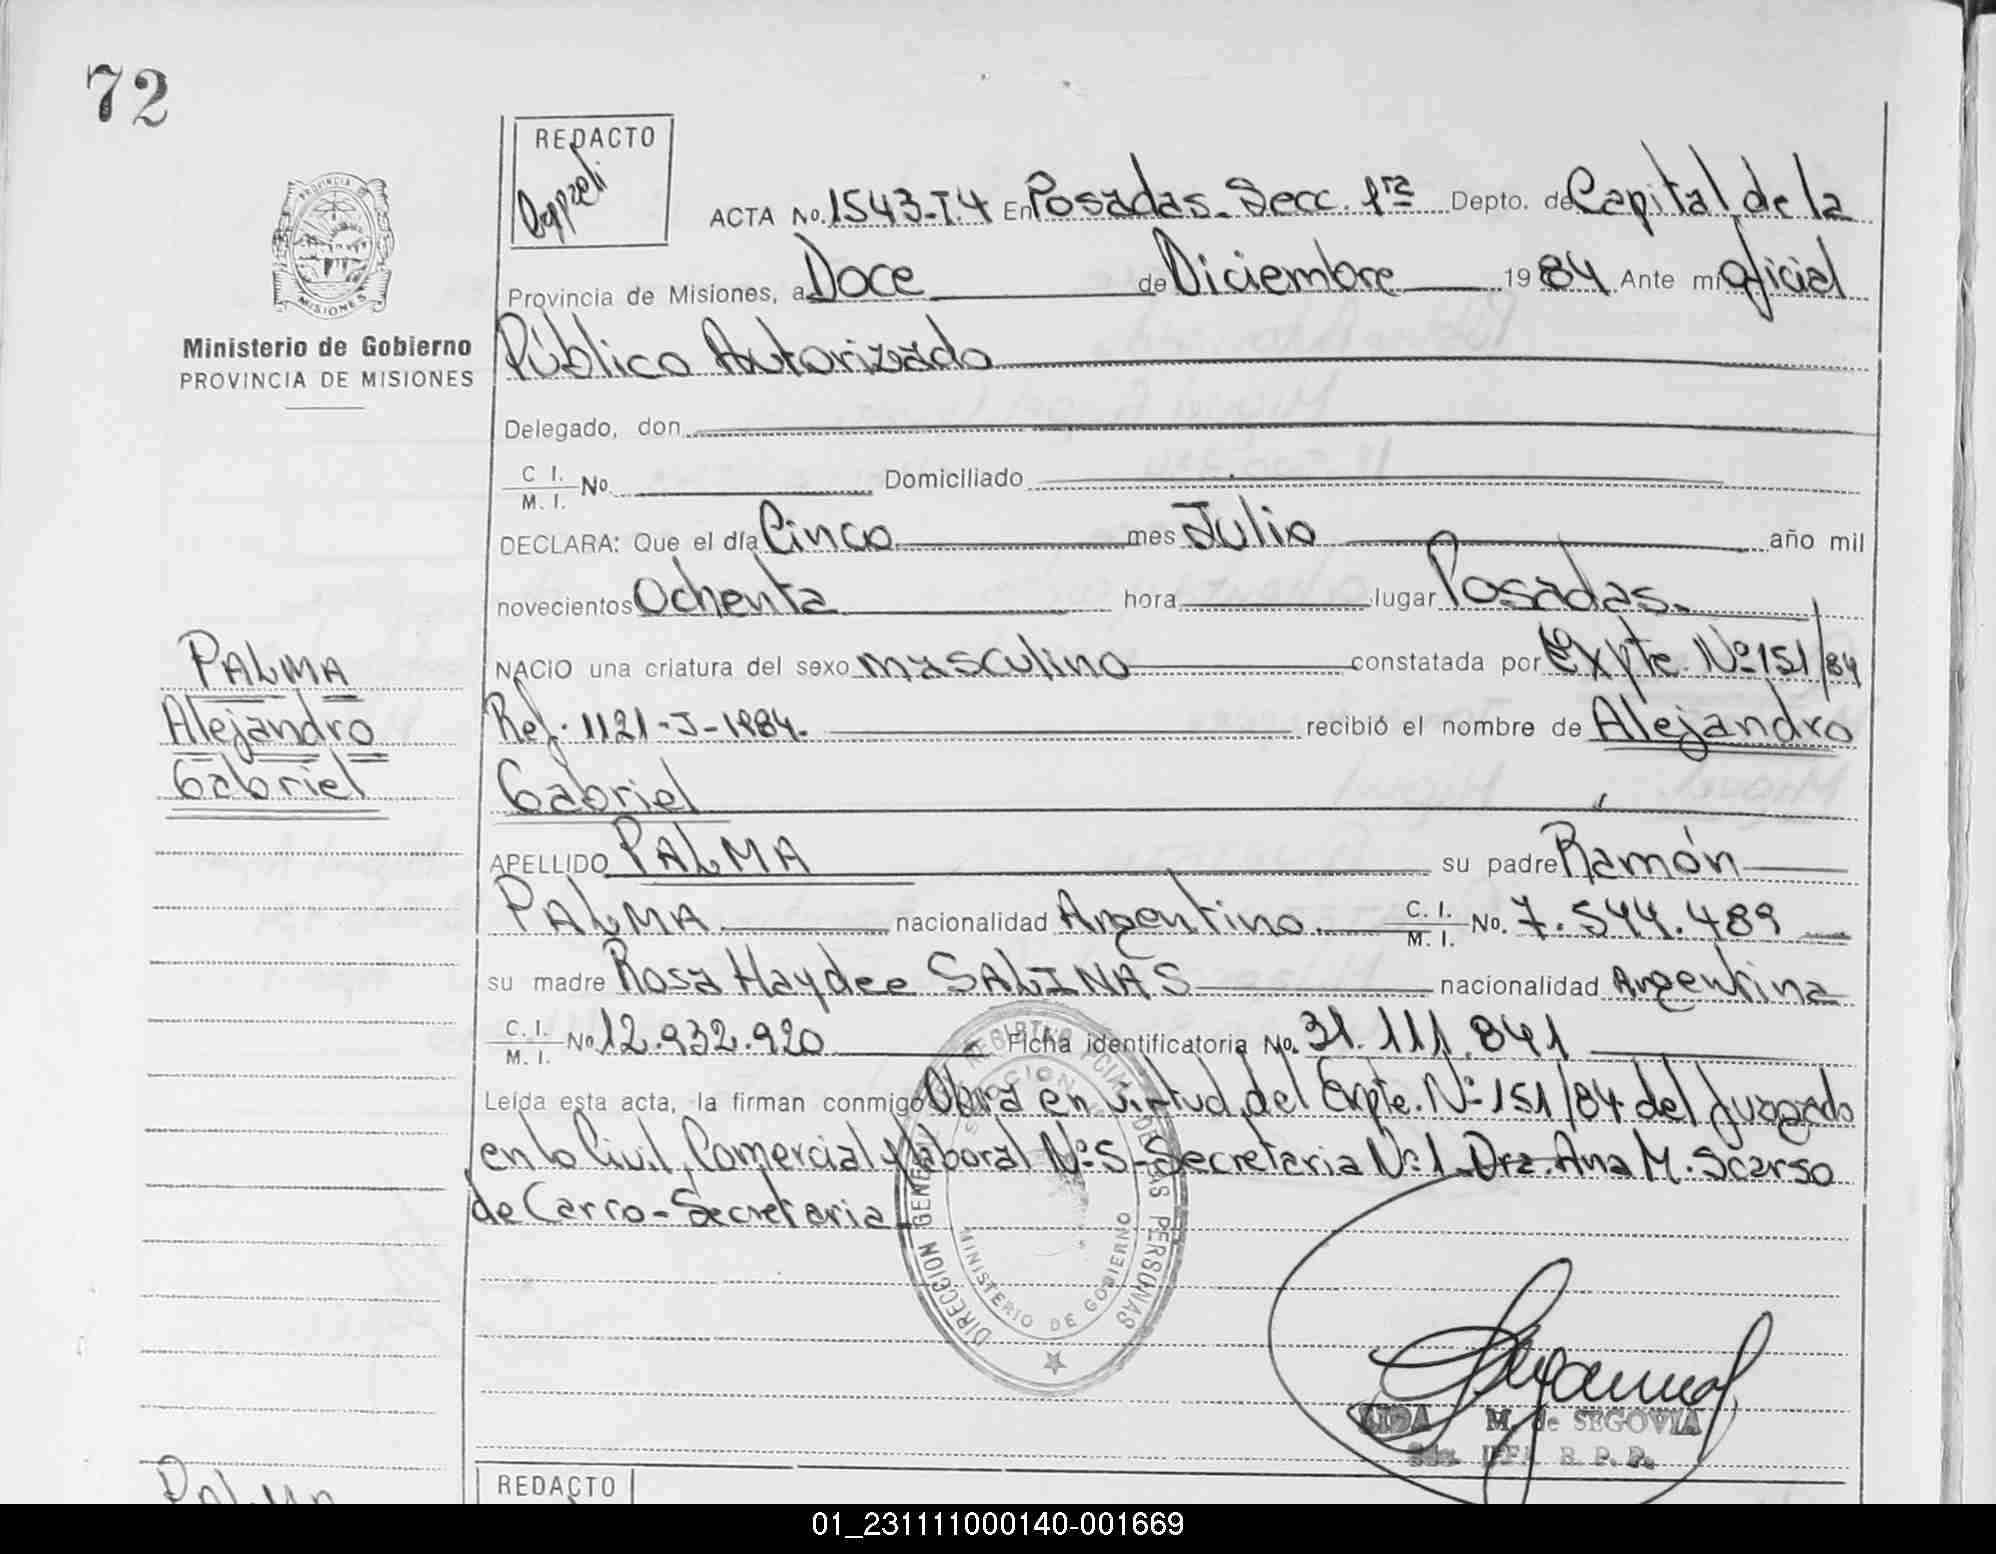 72
REDACTO
PROVINCIA
MISIONES
Ministerio de Gobierno
PROVINCIA DE MISIONES
ACTA No. 1543-T.4 En Posadas. Secc. 1ra Depto. de Capital, de la
Provincia de Misiones, a Doce de Diciembre 1984 Ante mi Oficial
Público Autorizado
Delegado, don
C. I. / M. I. No. Domiciliado
DECLARA: Que el día Cinco mes Julio año mil
novecientos Ochenta hora lugar Posadas.
NACIO una criatura del sexo masculino constatada por Expte. Nº 151/84
Ref. 1121-J-1984. recibió el nombre de Alejandro
Gabriel
PALMA
Alejandro
Gabriel
APELLIDO PALMA su padre Ramón
PALMA nacionalidad Argentino. C. I. / M. I. No. 7.544.489
su madre Rosa Haydee SALINAS nacionalidad Argentina
C. I. / M. I. No 12.932.920 Ficha identificatoria No. 31.111.841
Leída esta acta, la firman conmigo Obra en virtud del Expte. Nº 151/84 del Juzgado
en lo Civil, Comercial y laboral Nº 5-Secretaria Nº 1. Dra. Ana M. Scarso
de Carro-Secretaria.
DIRECCION GENERAL REGISTRO PCIAL. DE LAS PERSONAS
MINISTERIO DE GOBIERNO
M. de SEGOVIA
R. P. P.
REDACTO
PALMA
01_231111000140-001669